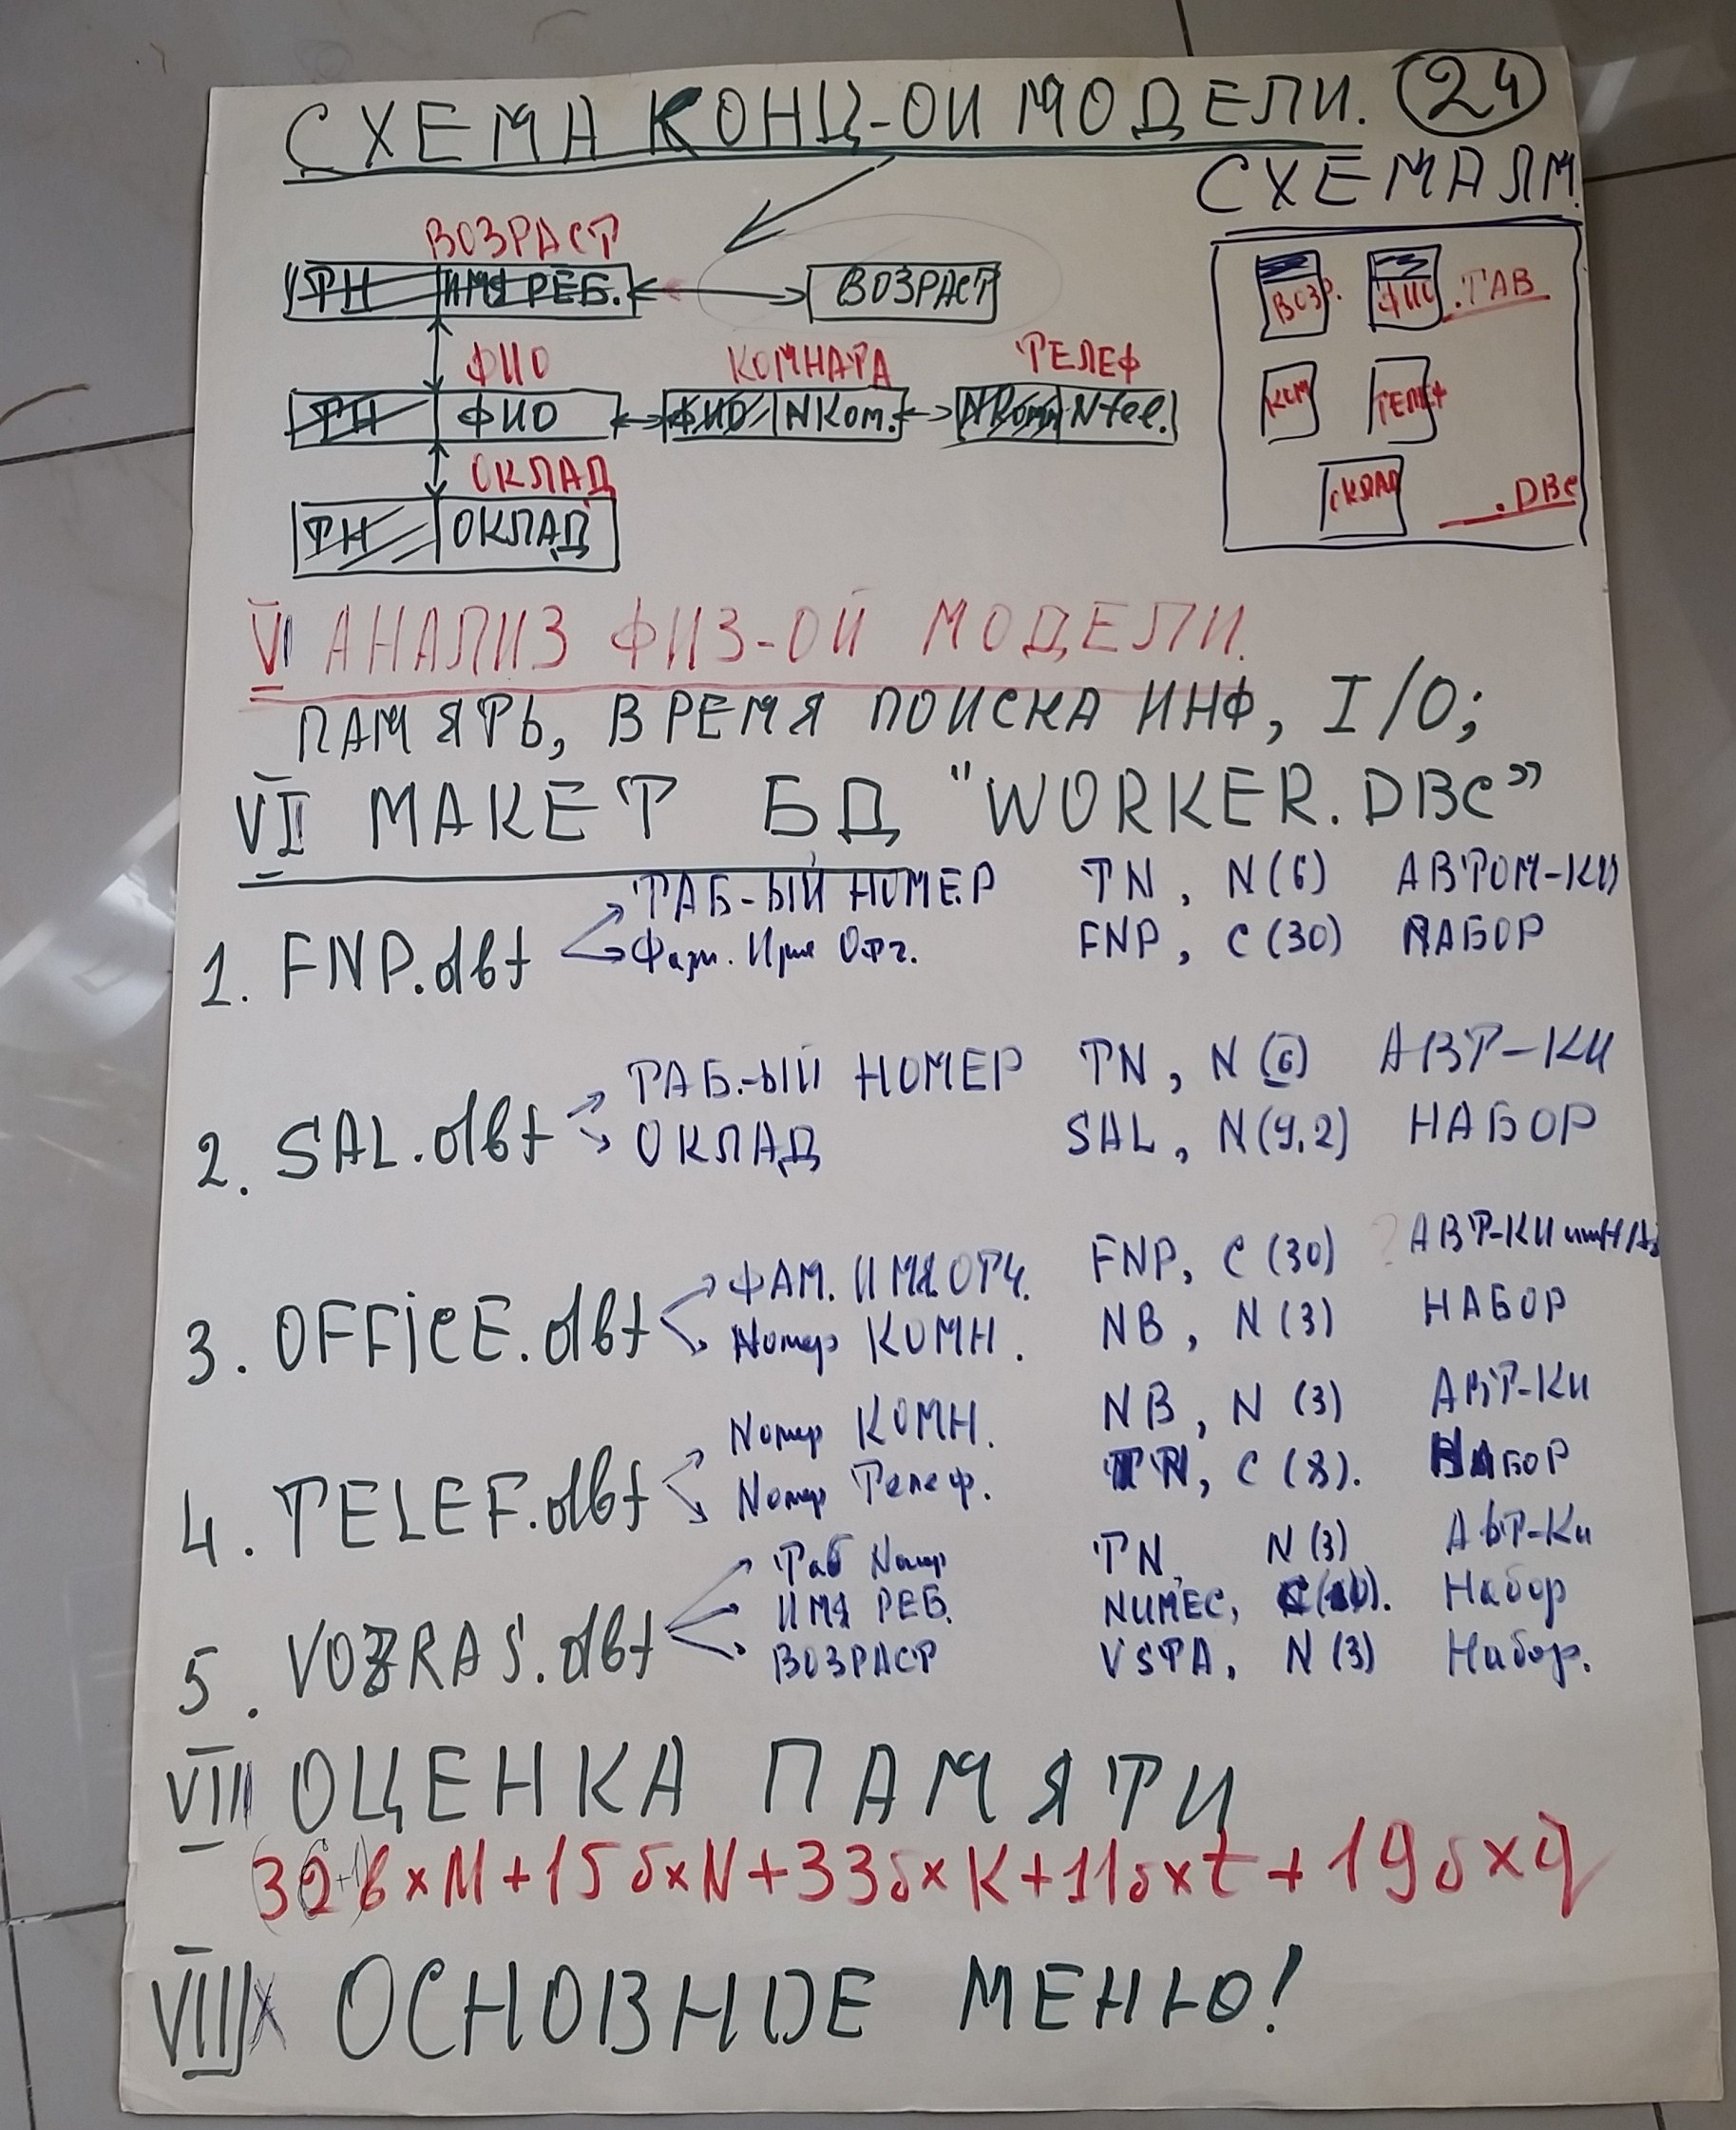 СХЕМА КОНЦ-ОЙ МОДЕЛИ. 24
СХЕМА ЯМ.
ВОЗРАСТ
ТН ИМЯ РЕБ. ВОЗРАСТ
ФИО КОМНАТА ТЕЛЕФ
ТН ФИО ФИО NКом. NКом Nтел.
ОКЛАД
ТН ОКЛАД
ВОЗР. ФИО .TAB
КОМ ТЕЛЕФ
ОКЛАД .DBC
VI АНАЛИЗ ФИЗ-ОЙ МОДЕЛИ.
ПАМЯТЬ, ВРЕМЯ ПОИСКА ИНФ, I/O;
VII МАКЕТ БД "WORKER.DBC"
1. FNP.dbf ТАБ-ЫЙ НОМЕР TN, N(6) АВТОМ-КИ
Фам. Имя Отч. FNP, C(30) НАБОР
2. SAL.dbf ТАБ.-ЫЙ НОМЕР TN, N(6) АВТ-КИ
ОКЛАД SAL, N(9,2) НАБОР
3. OFFiCE.dbf ФАМ. ИМЯ. ОТЧ. FNP, C(30) ? АВТ-КИ
Номер КОМН. NB, N(3) НАБОР
4. TELEF.dbf Номер КОМН. NB, N(3) АВТ-КИ
Номер Телеф. TN, C(8). НАБОР
5. VOZRAS.dbf Таб Номер TN, N(3) АВТ-Ки
ИМЯ РЕБ. NUMEC, Набор
ВОЗРАСТ VSTA, N(3) Набор.
VIII ОЦЕНКА ПАМЯТИ
x M + 15б x N + 33б x K + 11б x t + 19б x q
ОСНОВНОЕ МЕНЮ!